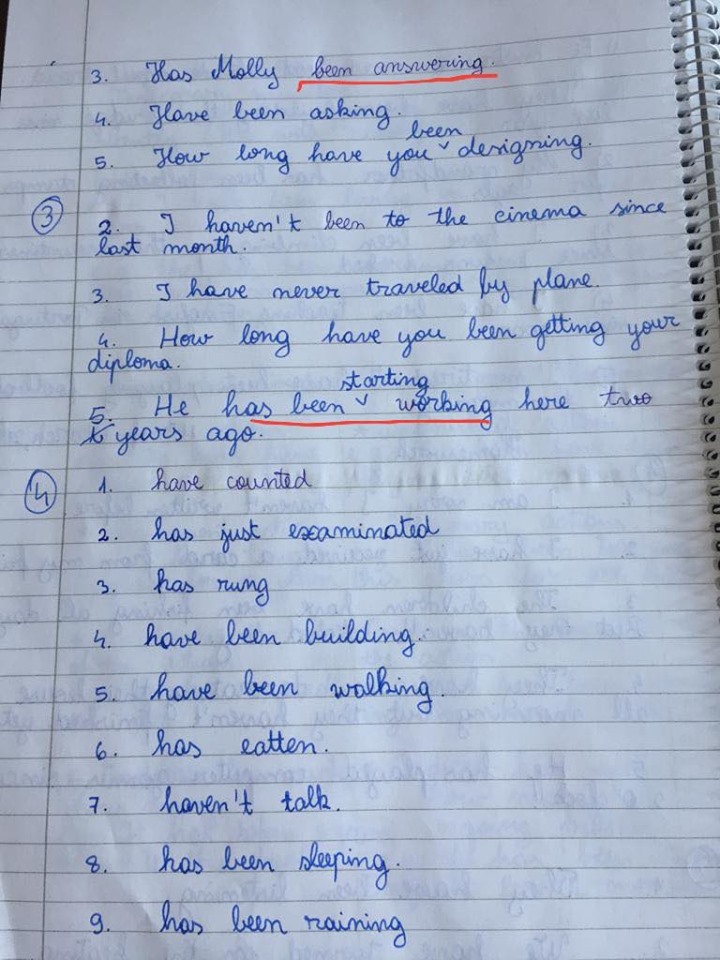 3. Has Molly been answering.
4. Have been asking.
been
5. How long have you ˅ designing.
3
2. I haven't been to the cinema since
last month.
3. I have never traveled by plane.
4. How long have you been getting your
diploma.
starting
5. He has been ˅ working here two
years ago.
4
1. have counted
2. has just examinated
3. has rung
4. have been building.
5. have been walking.
6. has eatten.
7. haven't talk.
8. has been sleeping.
9. has been raining